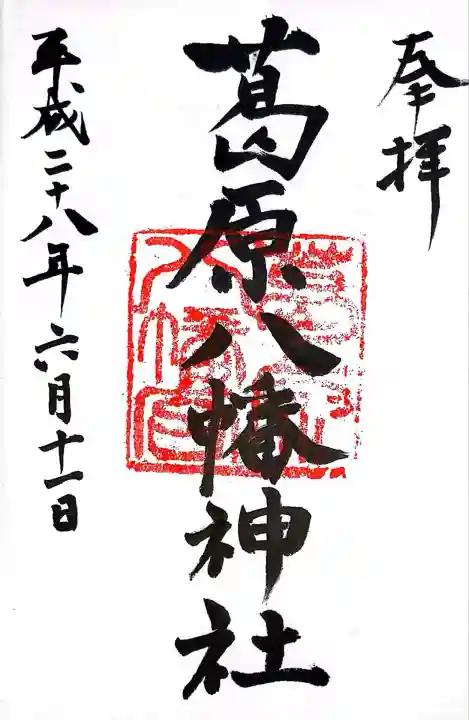 奉拝
葛原八幡神社
平成二十八年六月十一日